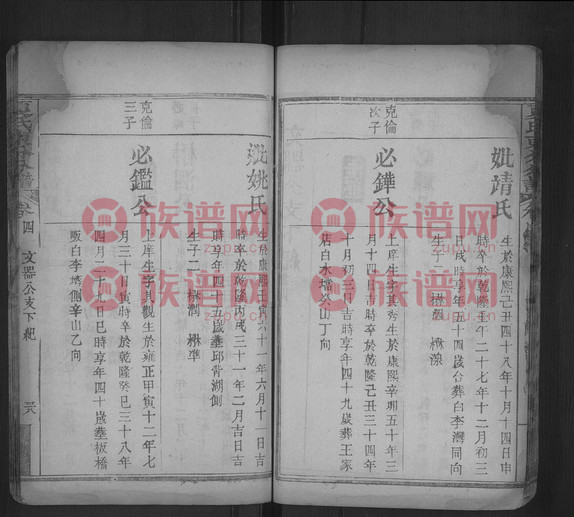 妣靖氏
生於康熙己丑四十八年十月十四日申
時卒於乾隆壬午二十七年十二月初三
日戌時享年五十四歲合葬白李灣同向
生子二 楙盤 楙潒
克倫
次子
必鏵公
上庠生字其秀生於康熙辛卯五十年三
月十四日吉時卒於乾隆己丑三十四年
十月初三月吉時享年四十九歲葬王家
店白水壋癸山丁向
妣姚氏
生於康熙壬寅六十一年六月十一日吉
時卒於乾隆丙戌三十一年二月吉日吉
時享年四十五歲塟邱背湖側
生子二 楙潤 楙準
克倫
三子
必鑑公
上庠生字其觀生於雍正甲寅十二年七
月三十日寅時卒於乾隆癸巳三十八年
四月二十七日巳時享年四十歲塟板橋
畈白李塆側辛山乙向
卷四 文器公支下紀
族谱网
zupu.cn